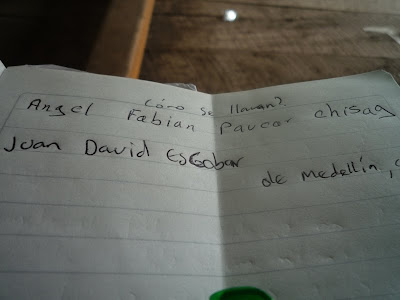 Córo se llaman?
Angel Fabian Paucar chisag
Juan David Escobar
de medellín,